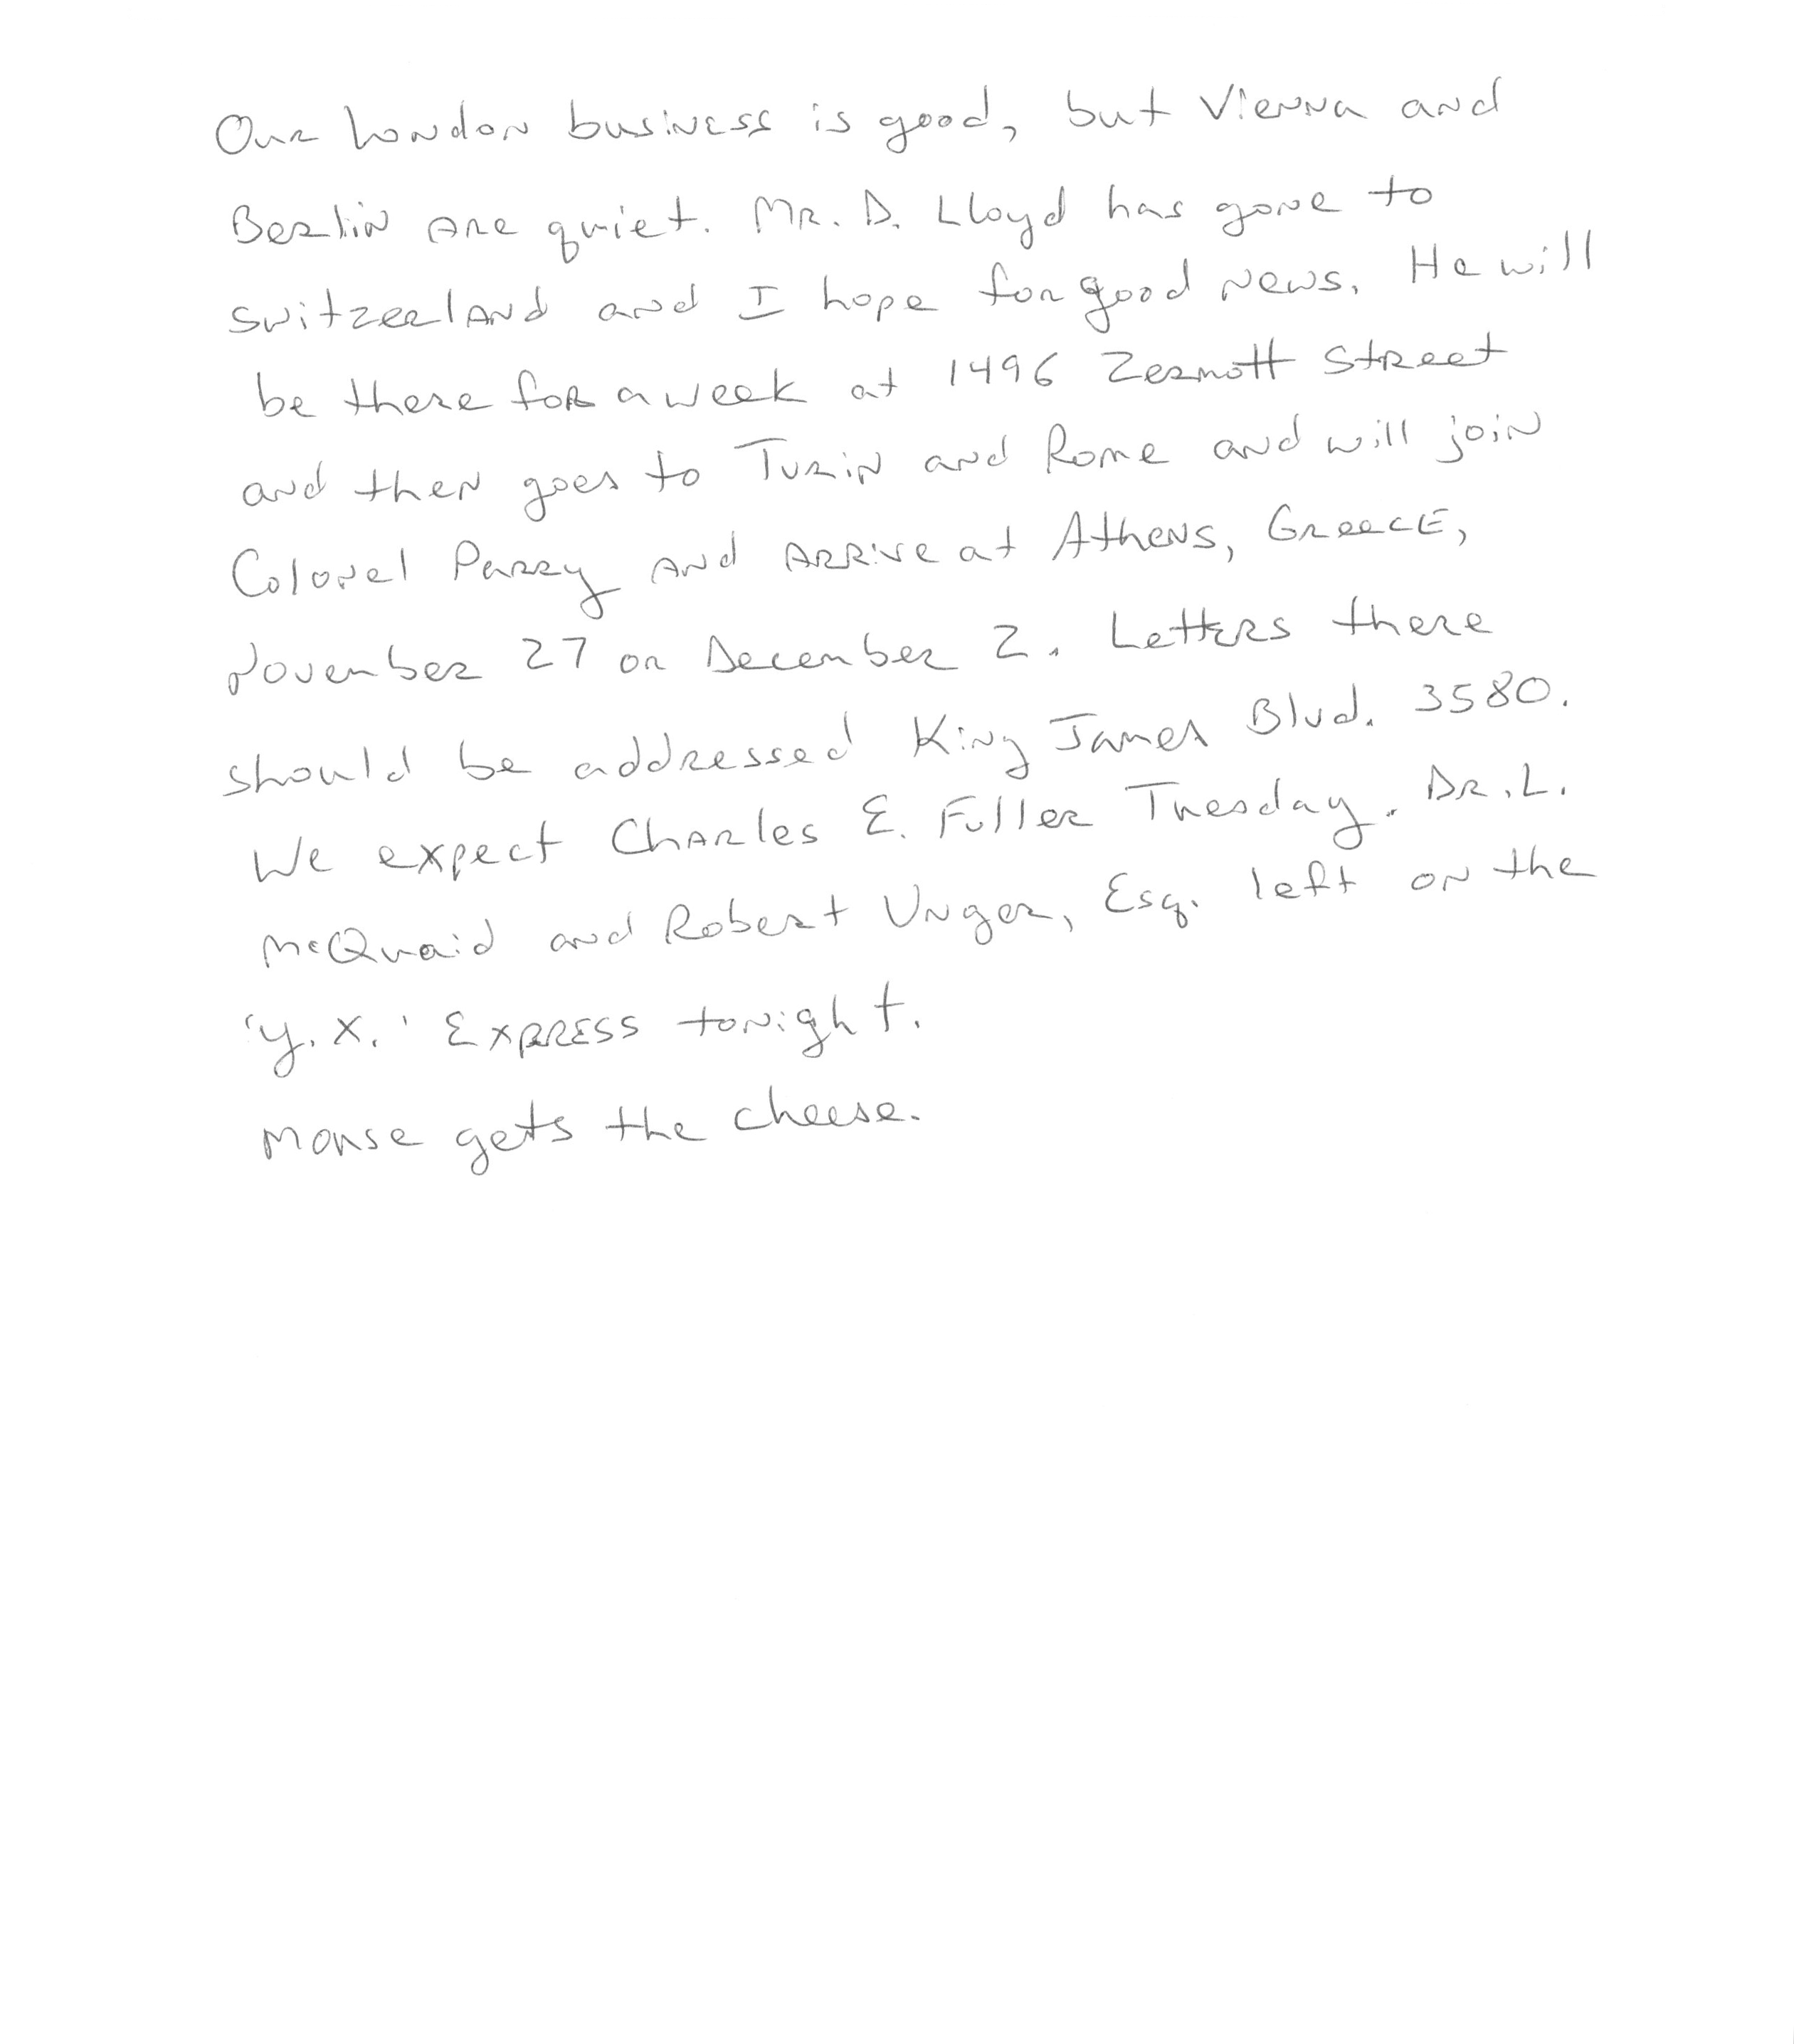 Our London business is good, but Vienna and
Berlin are quiet. Mr. D. Lloyd has gone to
Switzerland and I hope for good news. He will
be there for a week at 1496 Zermott Street
and then goes to Turin and Rome and will join
Colonel Parry and arrive at Athens, Greece,
November 27 or December 2. Letters there
should be addressed King James Blvd. 3580.
We expect Charles E. Fuller Tuesday. Dr. L.
McQuaid and Robert Unger, Esq. left on the
'Y. X.' Express tonight.
Mouse gets the cheese.